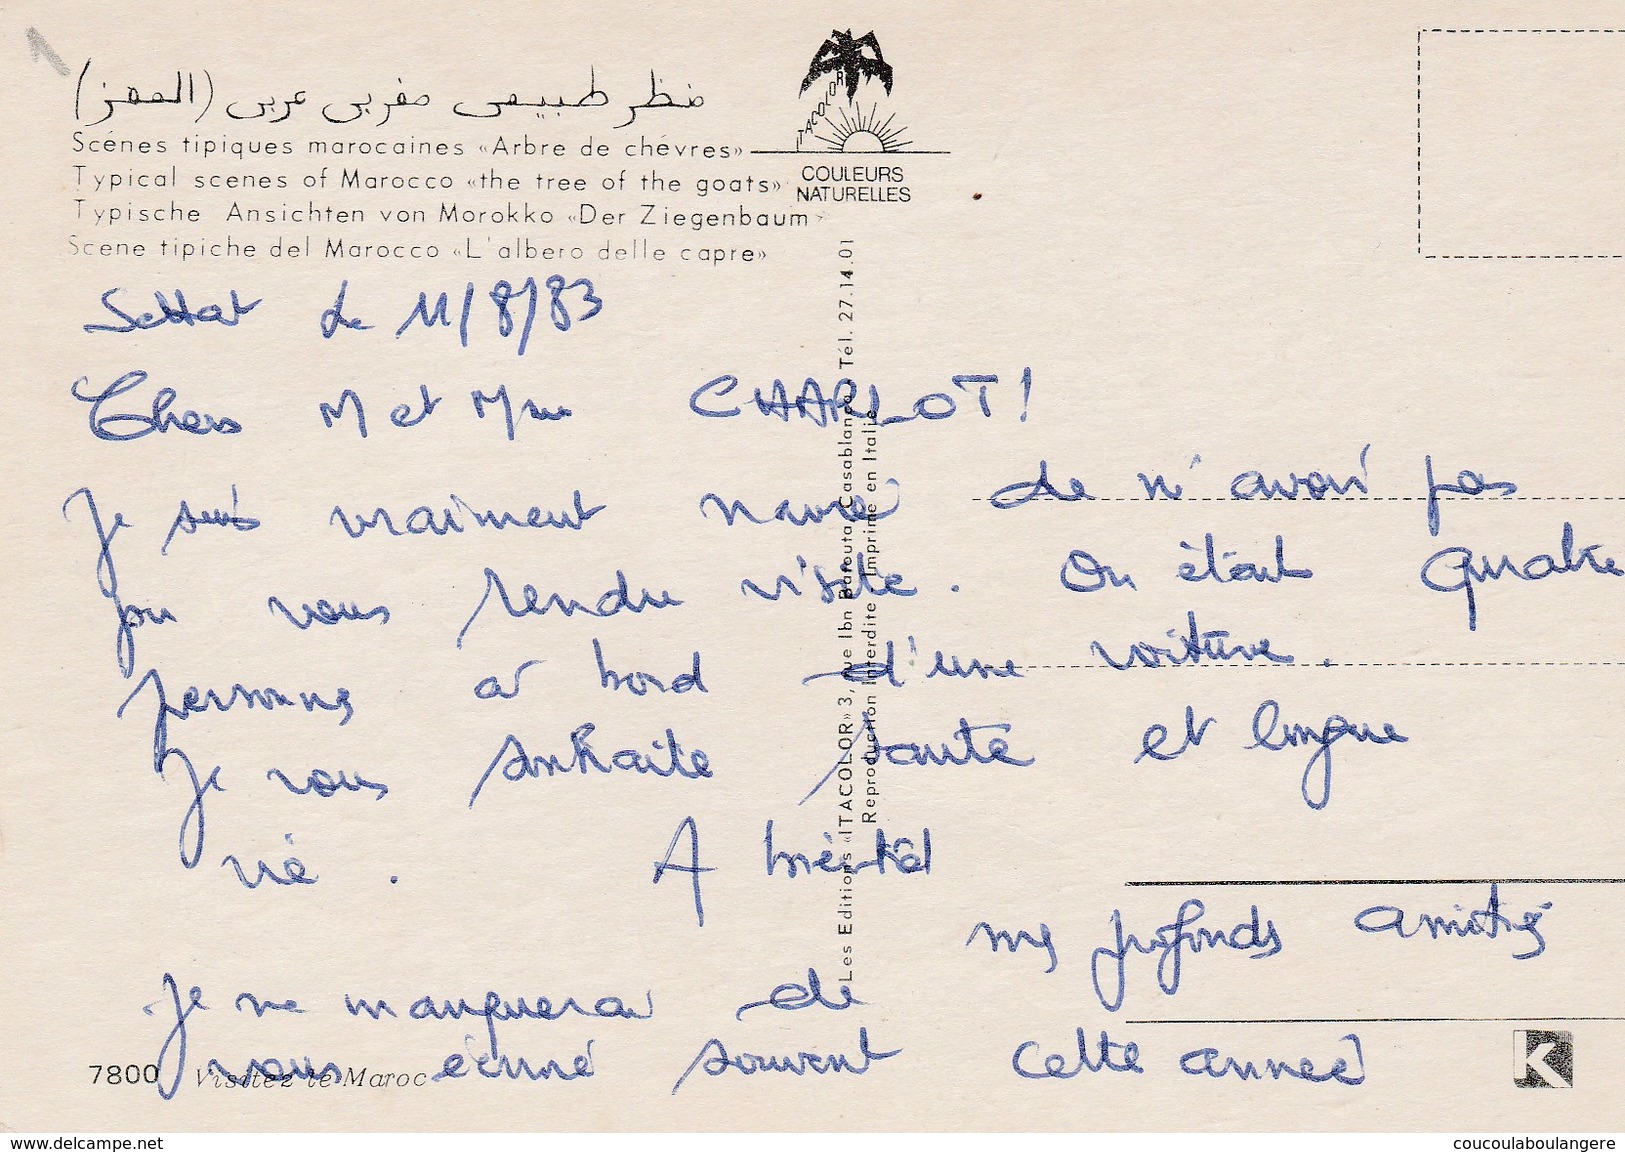 منظر طبيعي مغربي عربي (المعز)
Scénes tipiques marocaines «Arbre de chévres»
Typical scenes of Marocco «the tree of the goats»
Typische Ansichten von Morokko «Der Ziegenbaum»
Scene tipiche del Marocco «L'albero delle capre»
ITACOLOR
COULEURS
NATURELLES
Settat Le 11/8/83
Chers M et Mme CHARLOT!
Je suis vraiment navré de n'avoir pas
pu vous rendre visite. On était quatre
personnes à bord d'une voiture.
Je vous souhaite santé et longue
vie. A bientôt
mes profonds amitiés
Je ne manquerai de
vous écrire souvent cette année
Les Editions «ITACOLOR» 3, rue Ibn Batouta Casablanca Tél. 27.14.01
Reproduction Interdite Imprimé en Italie
7800 Visitez le Maroc
K
www.delcampe.net
coucoulaboulangere